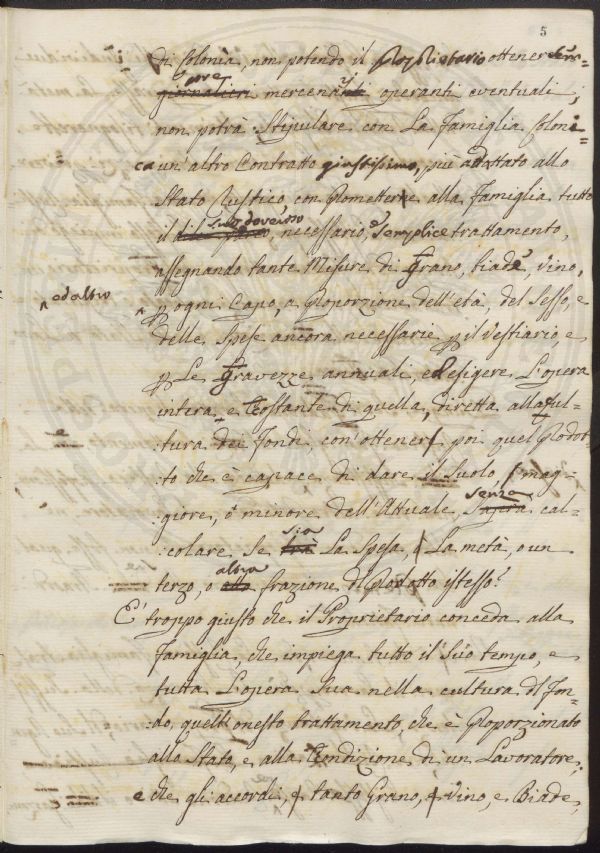 5
di Colonìa, non potendo il Proprietario ottener senza
giornalieri ore mercenarj operanti eventuali,
non potrà Stipulare con La Famiglia Coloni=
ca un'altro Contratto giustissimo, più adattato allo
Stato Rustico, con Prometter alla Famiglia tutto
il suo doveroso, necessario, e Semplice trattamento,
assegnando tante Misure di Grano, biade, vino,
ed altro
p ogni Capo, a Proporzione dell'età, del Sesso, e
delle Spese ancora necessarie p il Vestiario, e
p Le Gravezze annuali, ed esigere L'opera
intera, e Costante di quella, diretta alla Cul=
tura dei Fondi, con ottener poi quel Prodot=
to che è capace di dare il Suolo, mag=
:giore, o minore dell'Attuale, senza cal=
:colare Se sia La Spesa, La metà, o un
terzo, o altra frazione dl Prodotto istesso?
E' troppo giusto che il Proprietario conceda alla
Famiglia, che impiega tutto il Suo tempo, e
tutta L'opera Sua nella cultura dl Fon=
:do, quell'onesto trattamento, che è Proporzionato
allo Stato, e alla Condizione di un Lavoratore;
e che gli accordi, tanto Grano, Vino, e Biade,